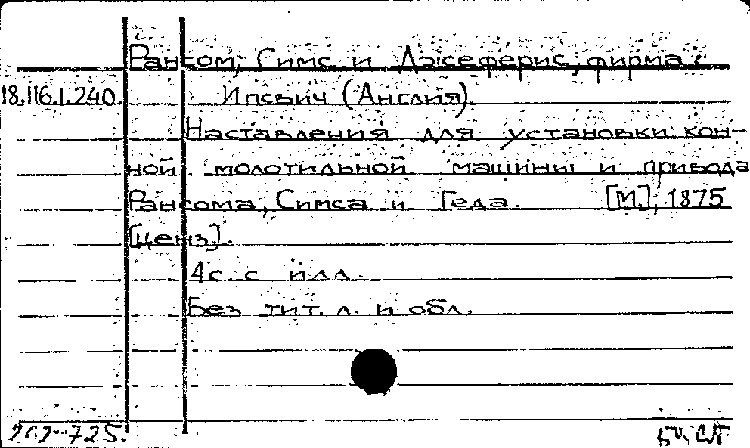 Рансом, Симс и Джеферис, фирма.
18.116.1.240. Ипсвич (Англия).
Наставления для установки кон-
ной молотильной машины и привода
Рансома, Симса и Геда. [М.], 1875
[ценз].
4с. с илл.
Без тит. л. и обл.